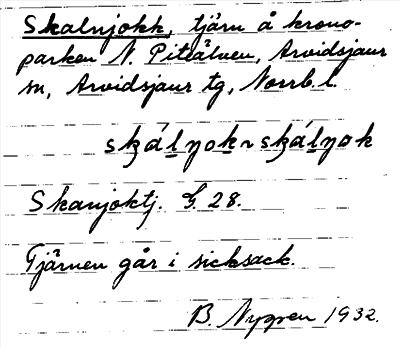 Skalnjokk, tjärn å krono-
parken N. Piteälven, Arvidsjaur
sn, Arvidsjaur tg, Norrb. l.
skálnok ~ skálnok
Skanjoktj. G. 28.
Tjärnen går i sicksack.
B. Nygren 1932.